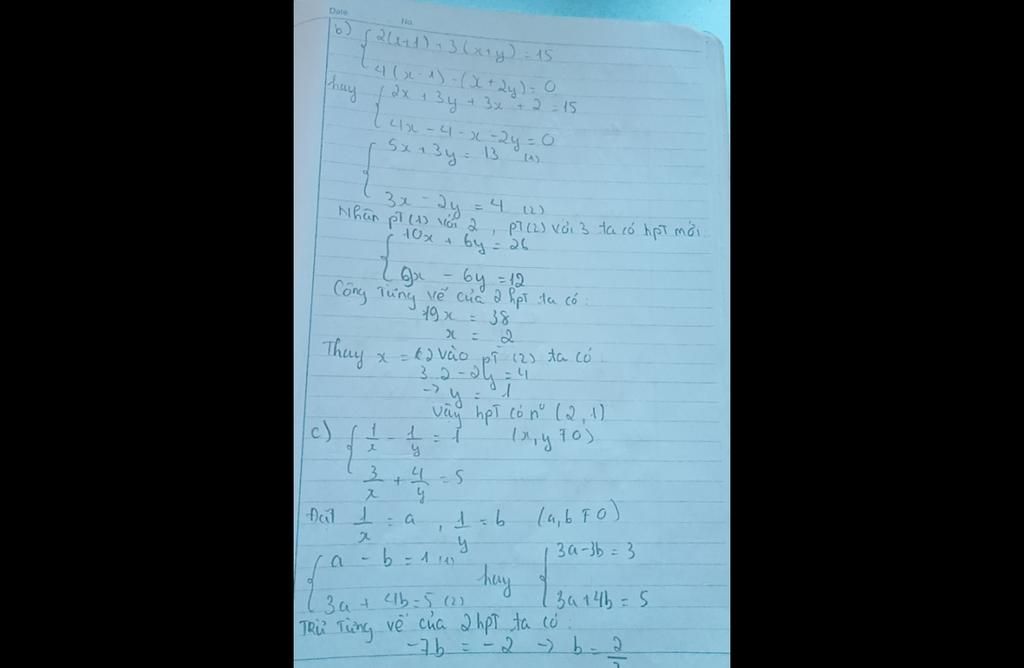 Date No.
b) { 2(x+1) + 3(x+y) = 15
4(x-1) - (x+2y) = 0
hay { 2x + 3y + 3x + 2 = 15
4x - 4 - x - 2y = 0
{ 5x + 3y = 13 (1)
3x - 2y = 4 (2)
Nhân pT(1) với 2, pT(2) với 3 ta có hpT mới
{ 10x + 6y = 26
9x - 6y = 12
Cộng từng vế của 2 hpT ta có:
19x = 38
x = 2
Thay x = 2 vào pT (2) ta có
3.2 - 2y = 4
→ y = 1
Vậy hpT có nº (2,1)
c) { 1/x - 1/y = 1 (x,y ≠ 0)
3/x + 4/y = 5
Đặt 1/x = a, 1/y = b (a,b ≠ 0)
{ a - b = 1 (1) hay { 3a - 3b = 3
3a + 4b = 5 (2) 3a + 4b = 5
Trừ từng vế của 2 hpT ta có:
-7b = -2 → b = 2/7